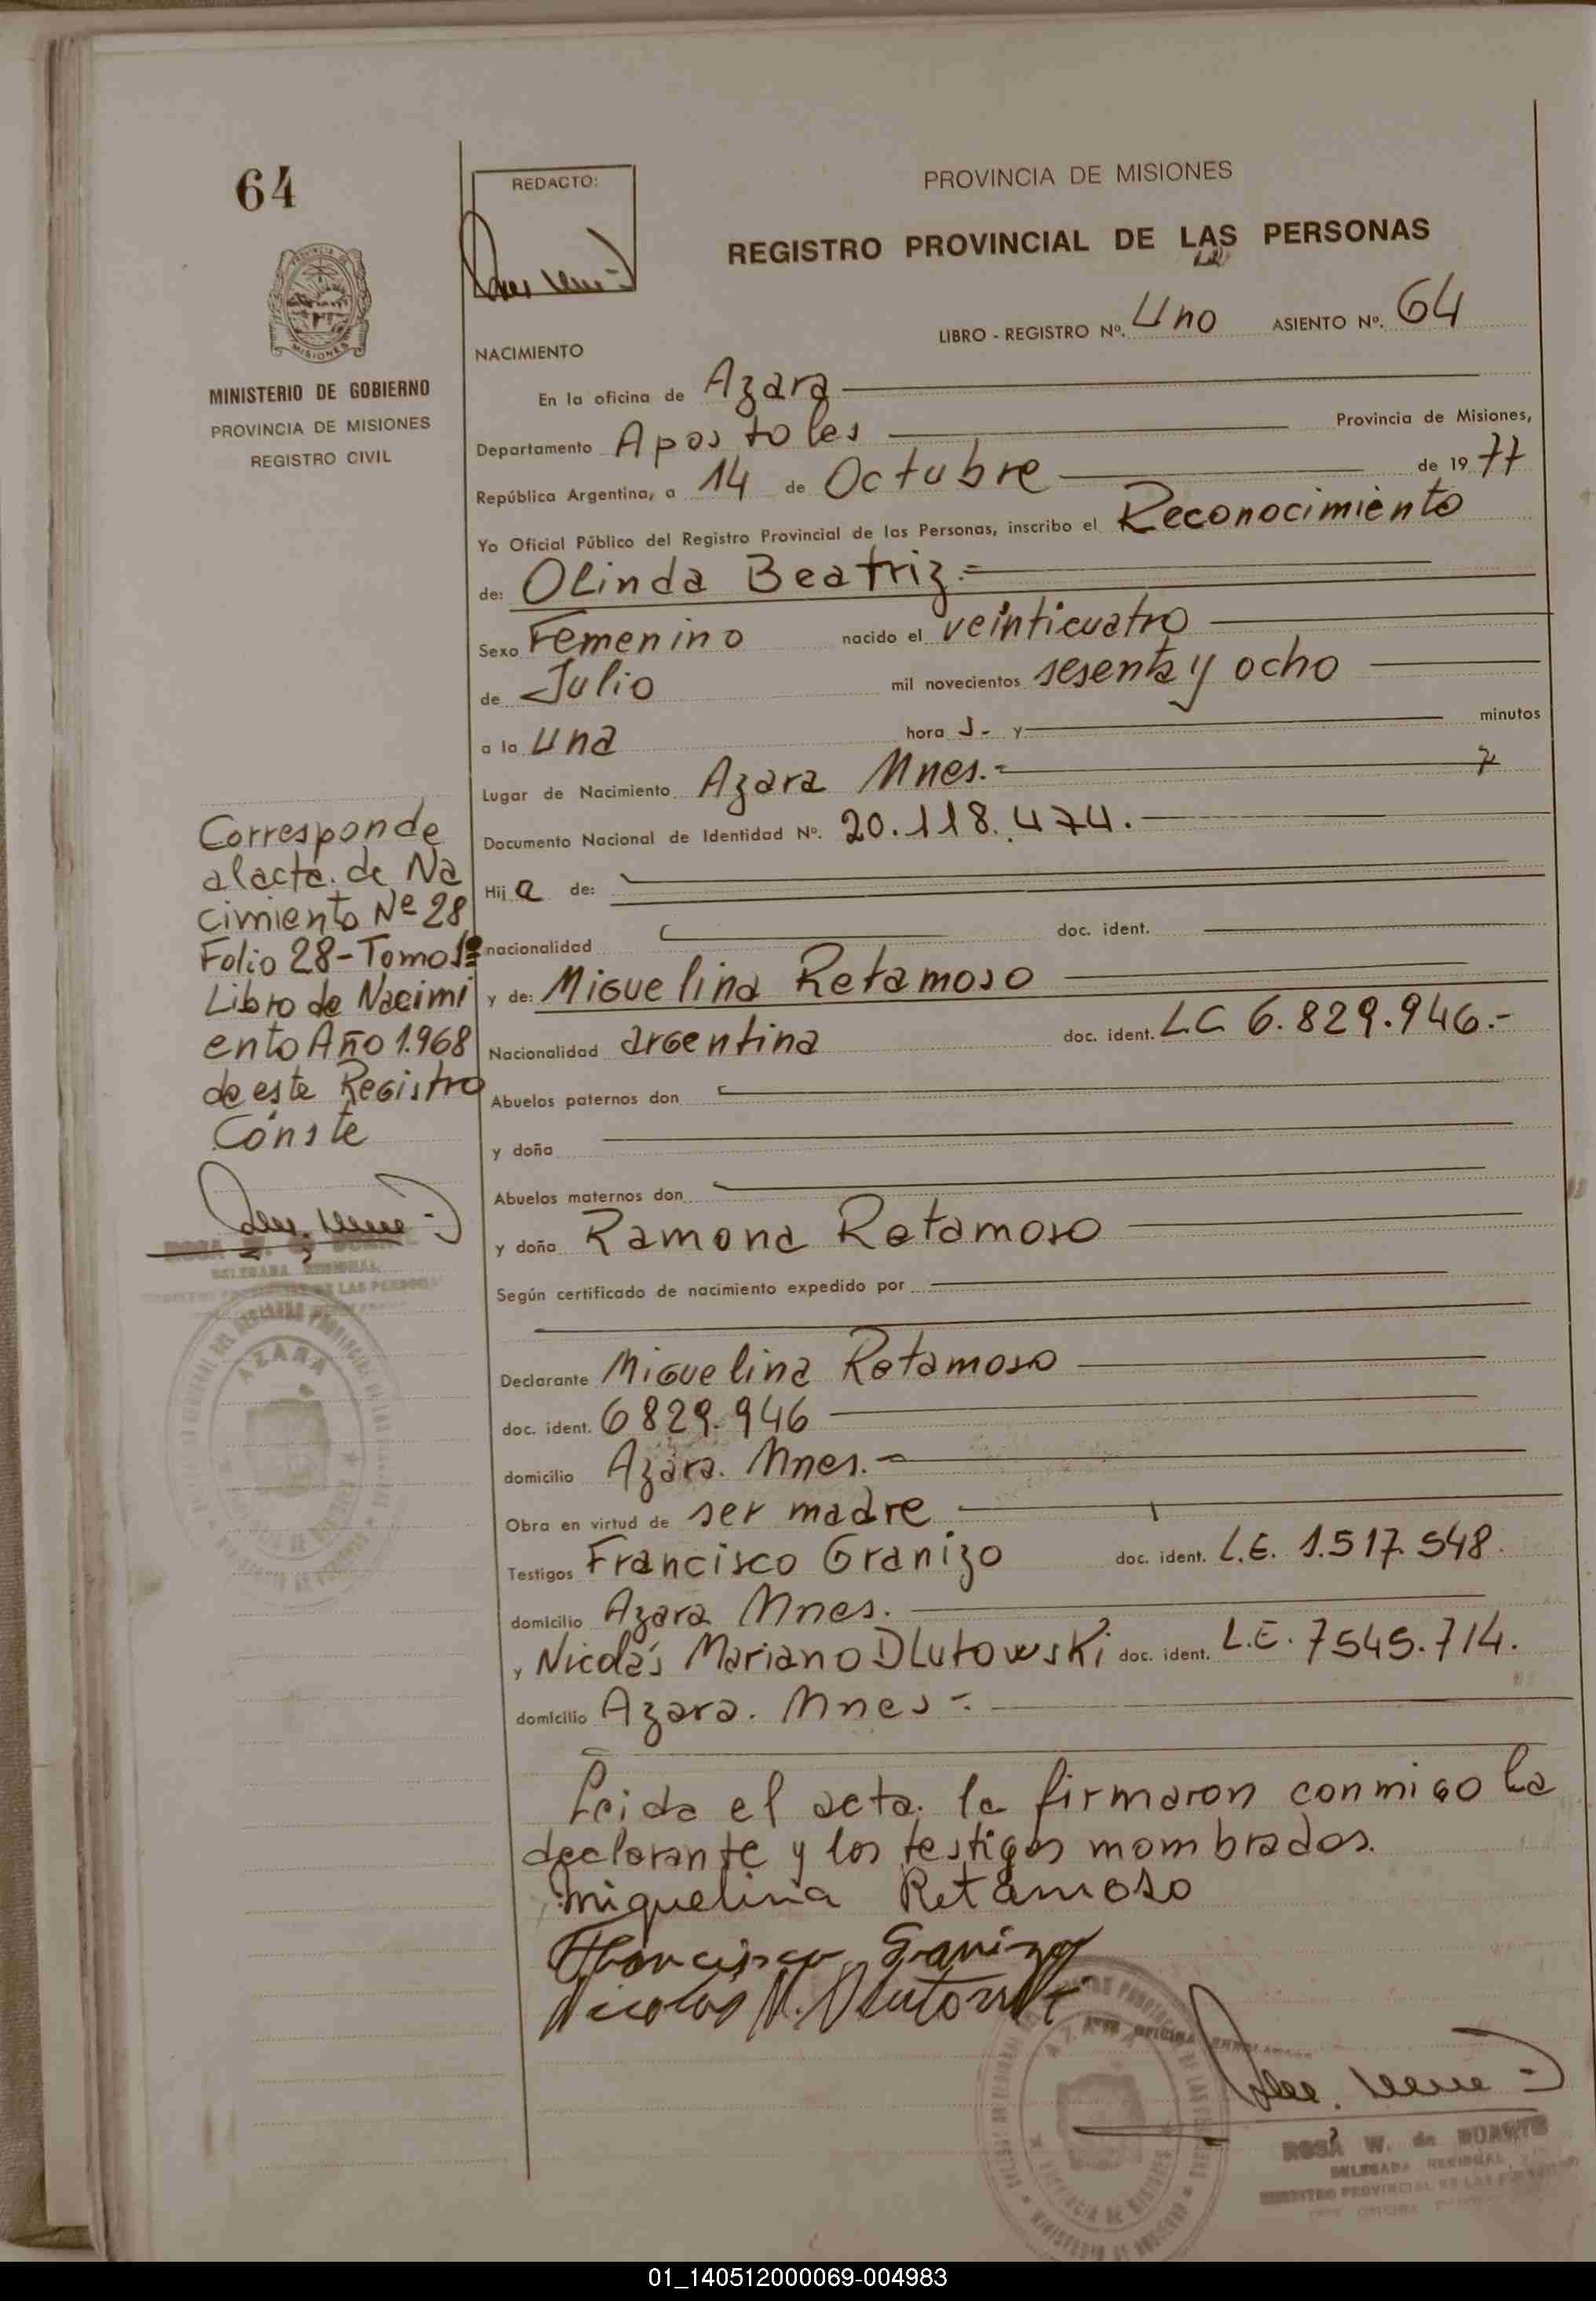 64
REDACTO:
PROVINCIA DE MISIONES
REGISTRO PROVINCIAL DE LAS PERSONAS
LIBRO - REGISTRO Nº. Uno ASIENTO Nº. 64
MISIONES
MINISTERIO DE GOBIERNO
PROVINCIA DE MISIONES
REGISTRO CIVIL
NACIMIENTO
En la oficina de Azara
Departamento Apostoles Provincia de Misiones,
República Argentina, a 14 de Octubre de 1977
Yo Oficial Público del Registro Provincial de las Personas, inscribo el Reconocimiento
de: Olinda Beatriz.=
Sexo Femenino nacido el veinticuatro
de Julio mil novecientos sesenta y ocho
a la una hora s.- y minutos
Lugar de Nacimiento Azara Mnes.-
Documento Nacional de Identidad Nº. 20.118.474.-
Hija de:
nacionalidad doc. ident.
y de: Miguelina Retamoso
Nacionalidad argentina doc. ident. LC 6.829.946.-
Abuelos paternos don
y doña
Abuelos maternos don
y doña Ramona Retamoso
Según certificado de nacimiento expedido por
Declarante Miguelina Retamoso
doc. ident. 6829.946
domicilio Azara. Mnes.-
Obra en virtud de ser madre
Testigos Francisco Granizo doc. ident. L.E. 1.517.548.
domicilio Azara Mnes.
y Nicolás Mariano Dlutowski doc. ident. L.E. 7545.714.
domicilio Azara. Mnes-.
Leida el acta. la firmaron conmigo la
declarante y los testigos mombrados.
Miguelina Retamoso
Francisco Granizo
Nicolas M. Dlutowski
Corresponde
al acta. de Na
cimiento Nº 28
Folio 28-Tomo 1º
Libro de Nacimi
ento Año 1.968
de este Registro
Conste
ROSA W. de DUARTE
DELEGADA REGIONAL
REGISTRO PROVINCIAL DE LAS PERSONAS
AZARA
AZARA
ROSA W. de DUARTE
DELEGADA REGIONAL
REGISTRO PROVINCIAL DE LAS PERSONAS
01_140512000069-004983